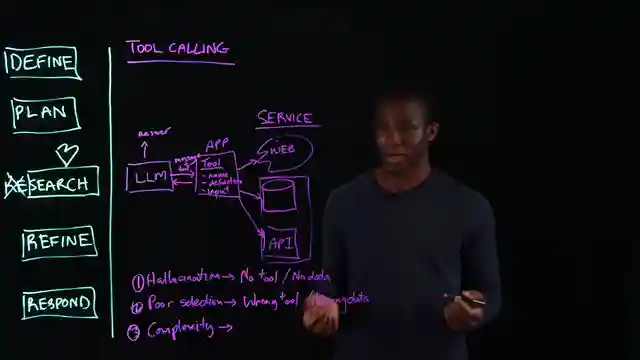 TOOL CALLING
DEFINE
PLAN
SEARCH
REFINE
RESPOND
answer
LLM
message
APP
Tool
- name
- definition
- input
SERVICE
WEB
API
① Hallucination → No tool / No data
② Poor selection → Wrong tool / Wrong data
③ Complexity →